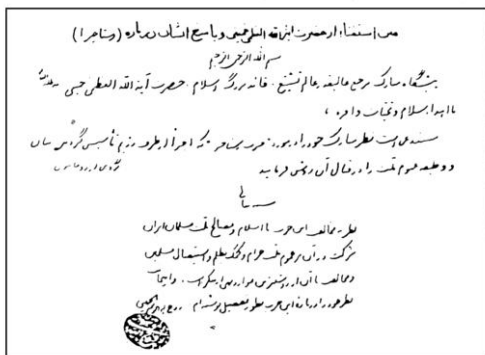 متن استفتاء از حضرت آیة الله العظمی خمینی و پاسخ ایشان درباره (رستاخیز)
بسم الله الرحمن الرحیم
پیشگاه مبارک مرجع عالیقدر عالم تشیع قائد بزرگ اسلام حضرت آیة الله العظمی خمینی
با اهداء سلام و تحیات وافره،
مستدعی است نظر مبارک خود را در مورد حزب که اخیرا از طرف رژیم تأسیس گردیده بیان
و وظیفه عموم ملت را در قبال آن روشن فرمایید
نظر به مخالفت این حزب با اسلام و مصالح ملت مسلمان ایران
شرکت در آن بر عموم ملت حرام و کمک به ظلم و استیصال مسلمین
و مخالفت با آن از روشنترین موارد نهی از منکر است. و اینجانب
نظر خود را درباره این حزب بطور تفصیل نوشته‌ام